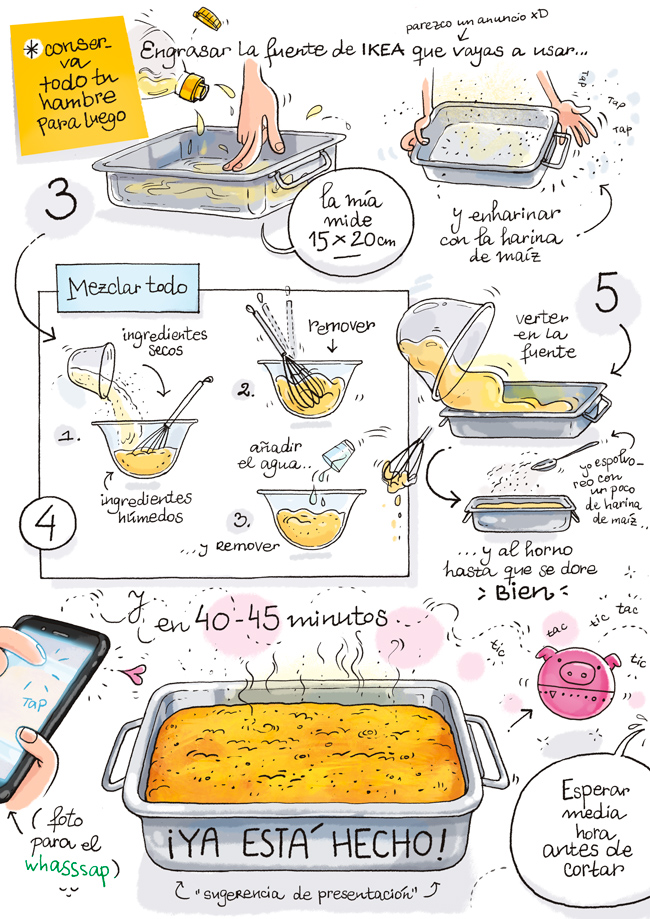 * conser-
va
todo tu
hambre
para luego
parezco un anuncio xD
Engrasar la fuente de IKEA que vayas a usar...
Tap
Tap
Tap
3
la mía
mide
15 x 20cm
y enharinar
con la harina
de maíz
Mezclar todo
ingredientes
secos
1.
ingredientes
húmedos
2.
remover
añadir
el agua...
3.
...y remover
4
5
verter
en la
fuente
yo espolvo-
reo con
un poco
de harina
de maíz...
...y al horno
hasta que se dore
Bien
Y
en 40-45 minutos
tic
tac
tic
tac
tic
Tap
(foto
para el
whasssap)
¡YA ESTÁ HECHO!
"sugerencia de presentación"
Esperar
media
hora
antes de
cortar